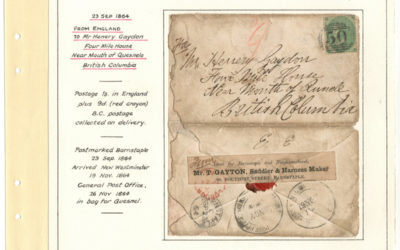 23 SEP 1864
FROM ENGLAND
To Mr Henery Gaydon
Four Mile House
Near Mouth of Quesnels
British Columbia
Postage 1s. in England
plus 9d. (red crayon)
B.C. postage
collected on delivery.
Postmarked Barnstaple
23 Sep 1864
Arrived New Westminster
19 Nov. 1864
General Post Office,
26 Nov 1864
in bag for Quesnel.
Mr Henery Gaydon
Four Mile House
Near Mouth of
British Columbia
Mr. T. GAYTON, Saddler & Harness Maker
BOUTPORT STREET, BARNSTAPLE.